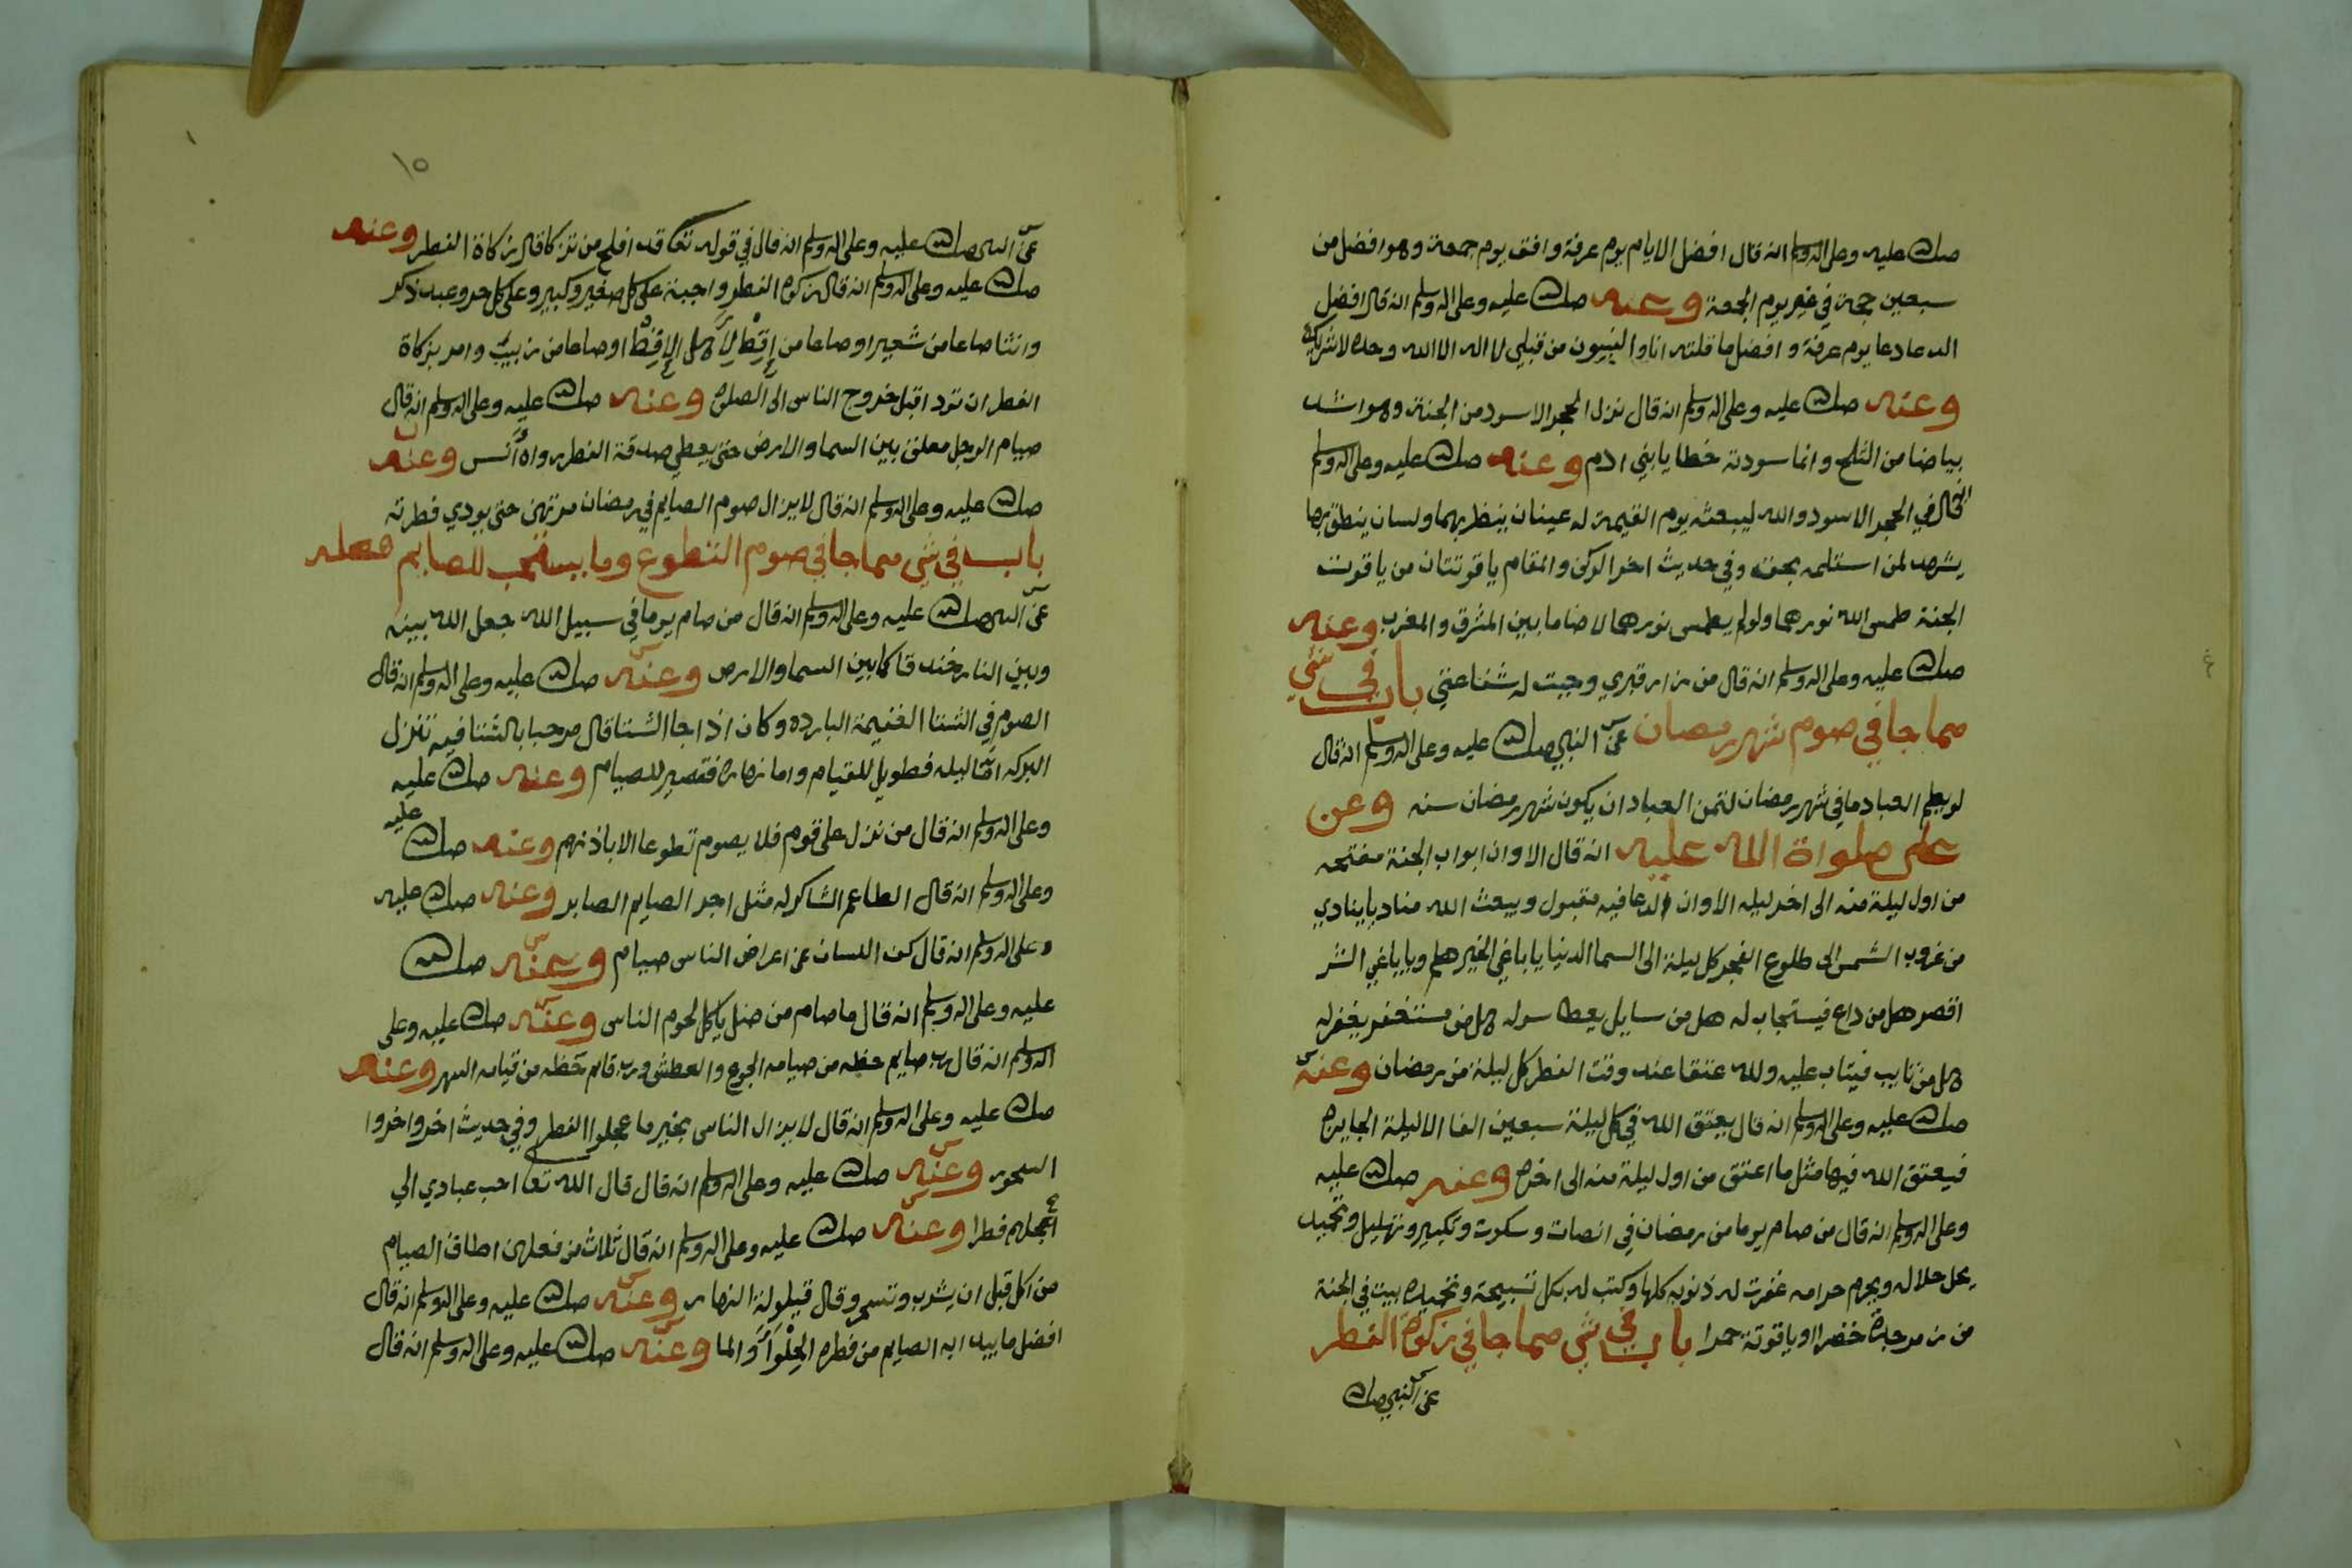 صلى الله عليه وعلى اله وسلم انه قال افضل الايام يوم عرفة وافق يوم جمعة وهو افضل من
سبعين حجة في غير يوم الجمعة وعنه صلى الله عليه وعلى اله وسلم انه قال افضل
الدعا دعا يوم عرفة وافضل ما قلته انا والنبيون من قبلي لا اله الا الله وحده لا شريك له
وعنه صلى الله عليه وعلى اله وسلم انه قال نزل الحجر الاسود من الجنة وهو اشد
بياضا من الثلج وانما سودته خطايا بني ادم وعنه صلى الله عليه وعلى اله وسلم
انه قال في الحجر الاسود والله ليبعثه يوم القيمة له عينان ينظر بهما ولسان ينطق بها
يشهد لمن استلمه بحقه وفي حديث اخر الركن والمقام ياقوتتان من ياقوت
الجنة طمس الله نورهما ولو لم يطمس نورهما لاضا ما بين المشرق والمغرب وعنه
صلى الله عليه وعلى اله وسلم انه قال من زار قبري وجبت له شفاعتي باب في شي
مما جا في صوم شهر رمضان عن النبي صلى الله عليه وعلى اله وسلم انه قال
لو يعلم العباد ما في شهر رمضان لتمن العباد ان يكون شهر رمضان سنه وعن
علي صلواة الله عليه انه قال الا وان ابواب الجنة مفتحه
من اول ليلة منه الى اخر ليله الا وان الدعا فيه مقبول ويبعث الله مناديا ينادي
من غروب الشمس الى طلوع الفجر كل ليلة الى السما الدنيا يا باغي الخير هلم ويا باغي الشر
اقصر هل من داع فيستجاب له هل من سايل يعطا سوله هل من مستغفر يغفر له
هل من تايب فيتاب عليه ولله عتقا عند وقت الفطر كل ليلة من رمضان وعنه
صلى الله عليه وعلى اله وسلم انه قال يعتق الله في كل ليلة سبعين الفا الا ليلة الجايزه
فيعتق الله فيها مثل ما اعتق من اول ليلة منه الى اخره وعنه صلى الله عليه
وعلى اله وسلم انه قال من صام يوما من رمضان في انصات وسكوت وتكبير وتهليل وتحميد
يحل حلاله ويحرم حرامه غفرت له ذنوبه كلها وكتب له بكل تسبيحة وتحميده بيت في الجنة
من زمرجدة خضرا او ياقوتة حمرا باب في شي مما جا في زكوة الفطر
عن النبي صلى الله
١٥
عن النبي صلى الله عليه وعلى اله وسلم انه قال في قوله تعا قد افلح من تزكا قال زكاة الفطر وعنه
صلى الله عليه وعلى اله وسلم انه قال زكوة الفطر واجبة على كل صغير وكبير وعلى كل حر وعبد ذكر
وانثا صاعا من شعير او صاعا من اقط لاهل الاقط او صاعا من زبيب وامر بزكاة
الفطر ان تردا قبل خروج الناس الى الصلوة وعنه صلى الله عليه وعلى اله وسلم انه قال
صيام الرجل معلق بين السما والارض حتى يعطي صدقة الفطر رواه أنس وعنه
صلى الله عليه وعلى اله وسلم انه قال لا يزال صوم الصايم في رمضان مرتهن حتى يودي فطرته
باب في شي مما جا في صوم التطوع وما يستحب للصايم فعله
عن النبي صلى الله عليه وعلى اله وسلم انه قال من صام يوما في سبيل الله جعل الله بينه
وبين النار خندقا كما بين السما والارض وعنه صلى الله عليه وعلى اله وسلم انه قال
الصوم في الشتا الغنيمة البارده وكان اذا جا الشتا قال مرحبا بالشتا فيه تنزل
البركه اما ليله فطويل للقيام واما نهاره فقصير للصيام وعنه صلى الله عليه
وعلى اله وسلم انه قال من نزل على قوم فلا يصوم تطوعا الا باذنهم وعنه صلى الله عليه
وعلى اله وسلم انه قال الطاعم الشاكر له مثل اجر الصايم الصابر وعنه صلى الله عليه
وعلى اله وسلم انه قال كف اللسان عن اعراض الناس صيام وعنه صلى الله
عليه وعلى اله وسلم انه قال ما صام من ضل ياكل لحوم الناس وعنه صلى الله عليه وعلى
اله وسلم انه قال رب صايم حظه من صيامه الجوع والعطش ورب قايم حظه من قيامه السهر وعنه
صلى الله عليه وعلى اله وسلم انه قال لا يزال الناس بخير ما عجلوا الفطر وفي حديث اخر واخروا
السحور وعنه صلى الله عليه وعلى اله وسلم انه قال قال الله تعا احب عبادي الي
اعجلهم فطرا وعنه صلى الله عليه وعلى اله وسلم انه قال ثلاث من فعلهن اطاق الصيام
من اكل قبل ان يشرب وتسحر وقال قيلولة النهار وعنه صلى الله عليه وعلى اله وسلم انه قال
افضل ما يبدا به الصايم من فطره الحلوا والما وعنه صلى الله عليه وعلى اله وسلم انه قال